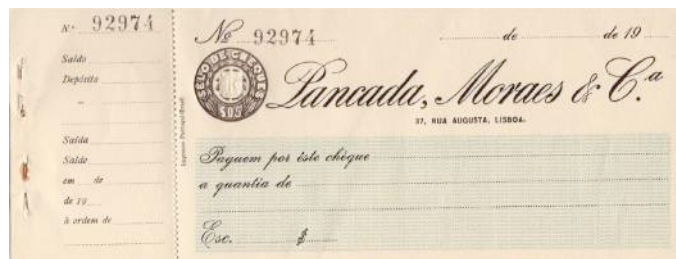 Nº 92974
Saldo
Depósito
Saída
Saldo
em de
de 19
à ordem de
Nº 92974
de de 19
SELO DE CHEQUES
$05
Pancada, Moraes & C.ª
37, RUA AUGUSTA, LISBOA.
Paguem por êste chèque
a quantia de
Esc. $